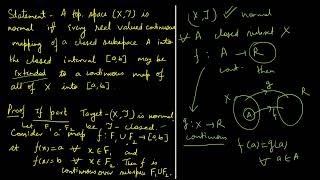 Statement - A top. space (X,J) is
normal iff every real valued continuous
mapping of a closed subspace A into
the closed interval [a,b] may be
Extended to a continuous map of
all of X into [a,b]
Proof If part Target - (X,J) is normal
Let F₁, F₂ be J-closed.
Consider a map f: F₁∪F₂→[a,b]
st f(x)=a ∀ x∈F₁ and
f(x)=b ∀ x∈F₂ Then f is
continuous over subspace F₁∪F₂.
(X,J) normal
∀ A closed subset X
f: A → R
cont. then
g
A
f
R
g: X → R
continuous
f(a)=g(a)
∀ a∈A